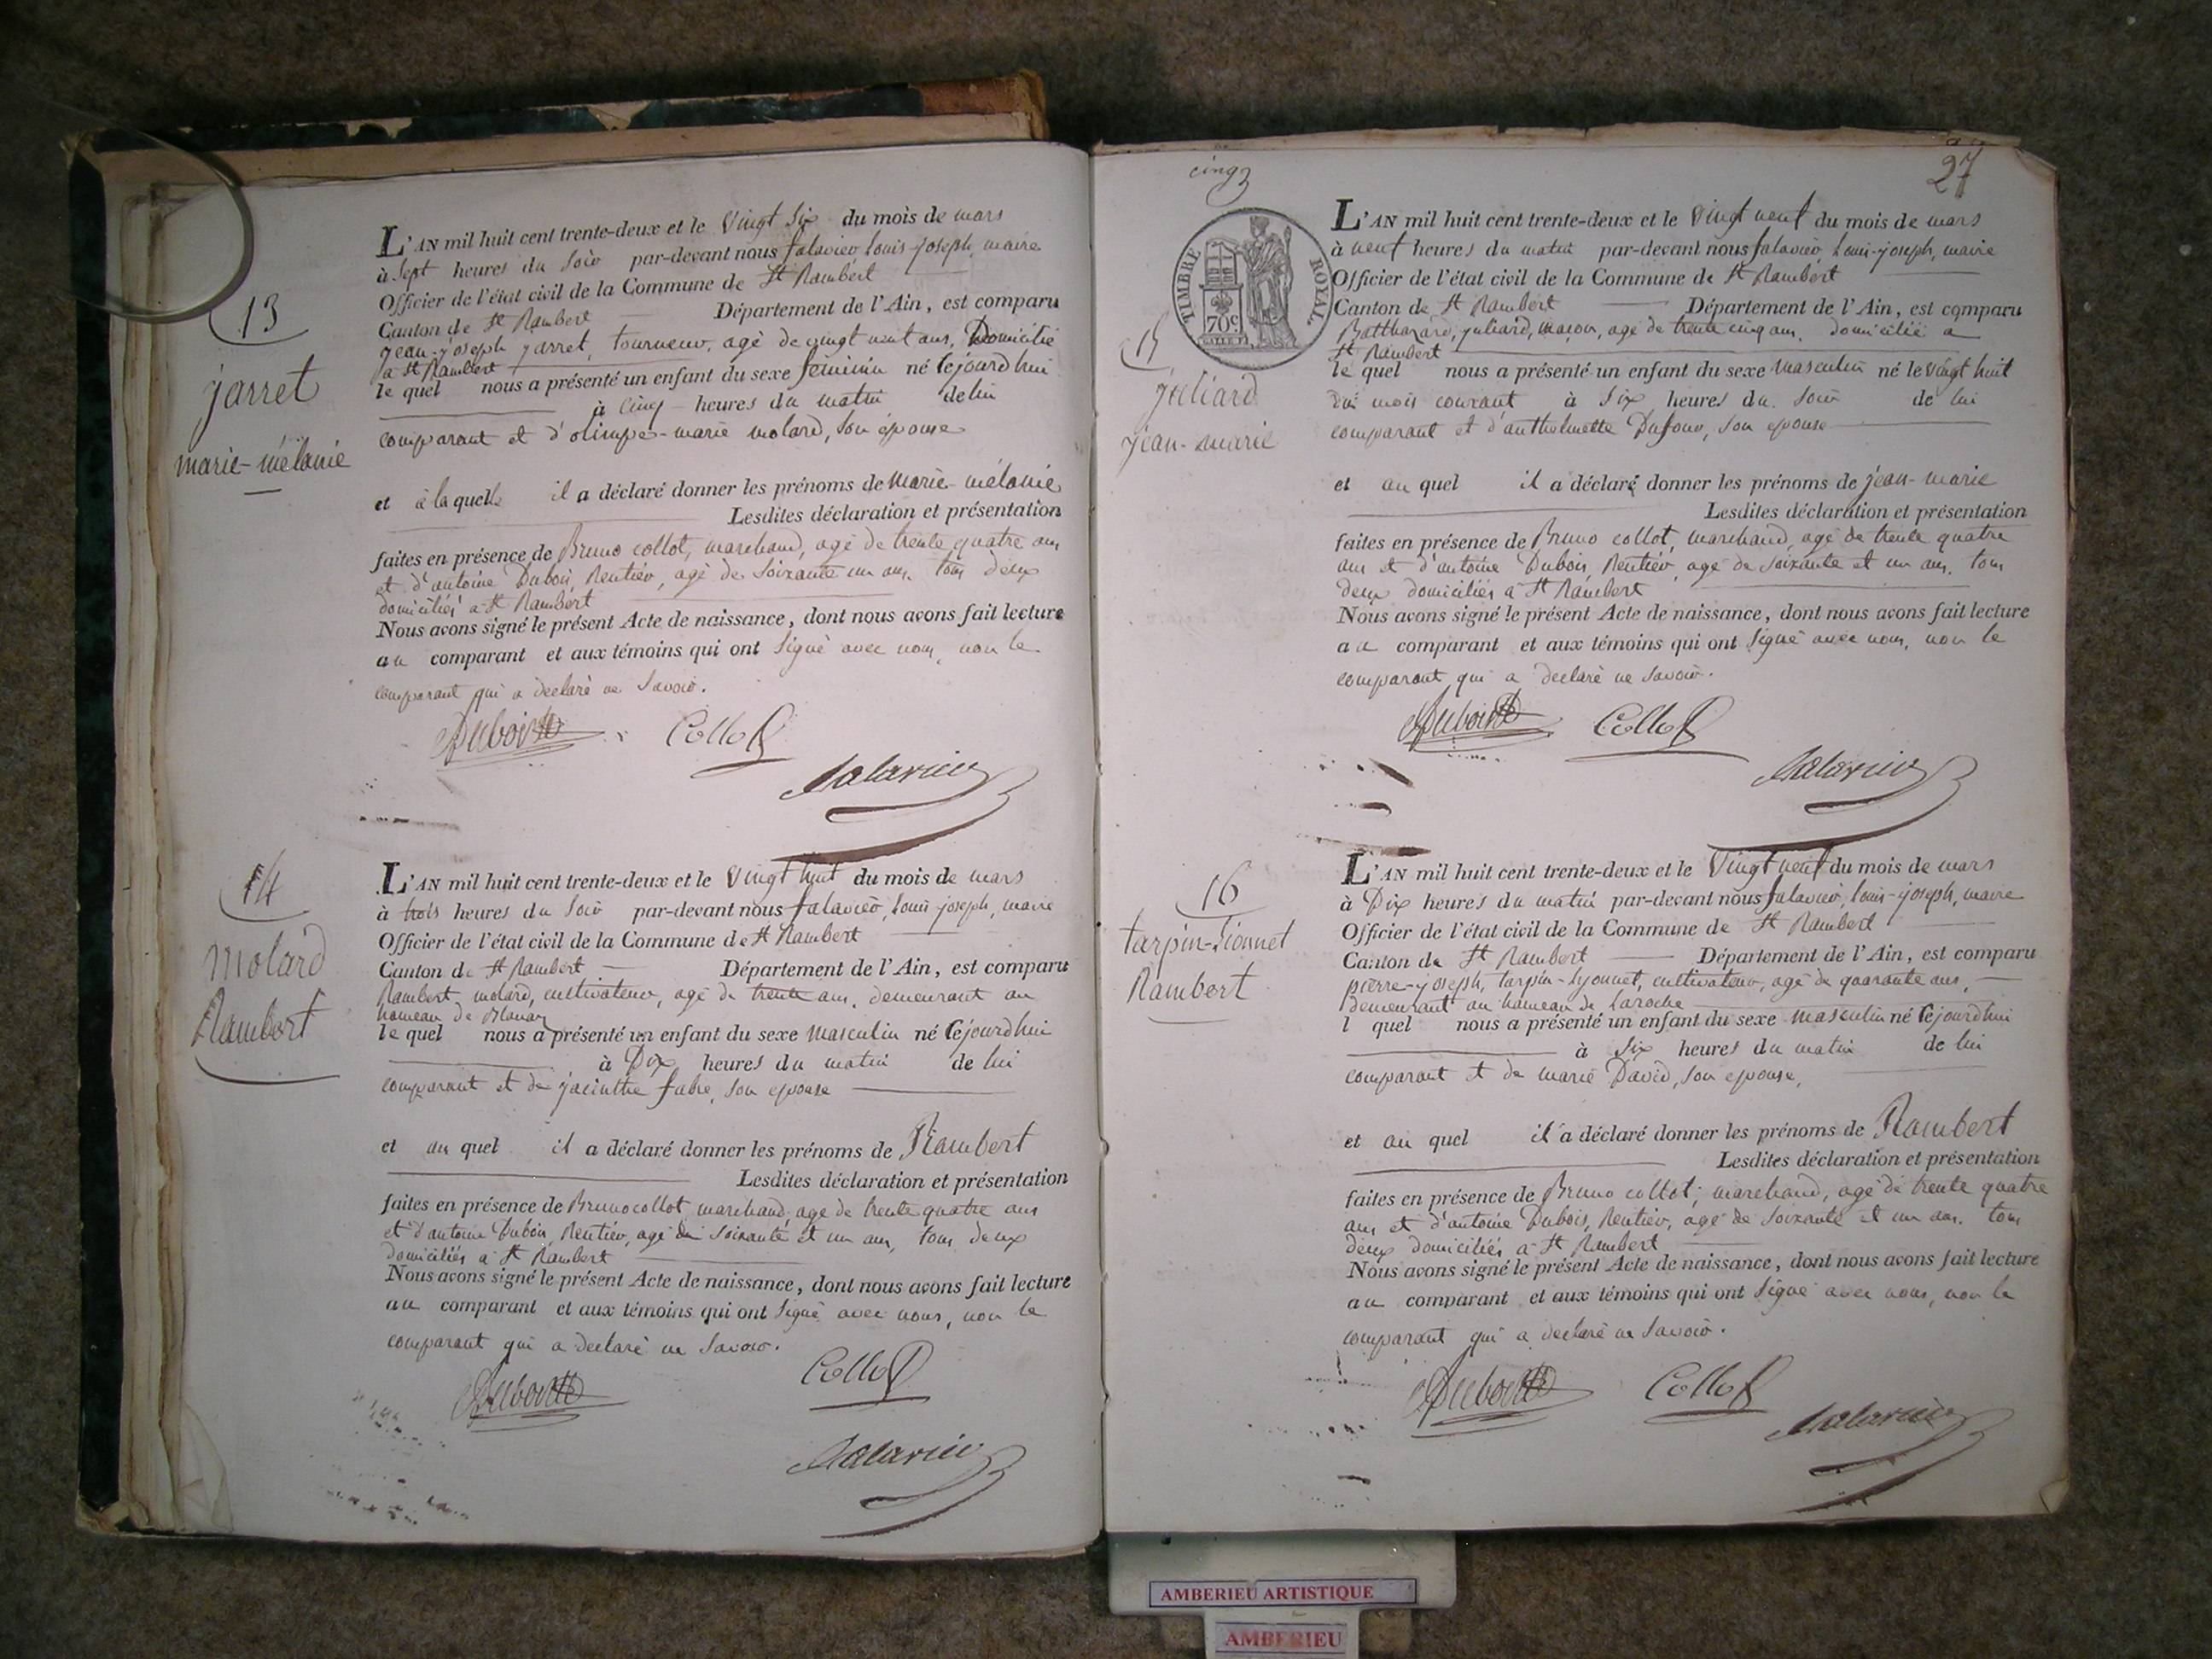 13
jarret
marie-mélanie
L'AN mil huit cent trente-deux et le vingt six du mois de mars
à sept heures du soir par-devant nous falavier, louis-joseph, maire
Officier de l'état civil de la Commune de St Rambert
Canton de St Rambert Département de l'Ain, est comparu
jean-joseph jarret, tourneur, agé de vingt huit ans, Domicilié
à St Rambert
le quel nous a présenté un enfant du sexe feminin né cejourdhui
à cinq heures du matin de lui
comparant et d'olimpe-marie molard, son épouse
et à la quelle il a déclaré donner les prénoms de marie-mélanie
Lesdites déclaration et présentation
faites en présence de Bruno collot, marchand, agé de trente quatre ans
et d'antoine Dubois, Rentier, agé de soixante un ans, tous deux
domiciliés à St Rambert
Nous avons signé le présent Acte de naissance, dont nous avons fait lecture
au comparant et aux témoins qui ont signé avec nous, non le
comparant qui a declaré ne savoir.
Dubois Collot
falavier
14
molard
Rambert
L'AN mil huit cent trente-deux et le vingt huit du mois de mars
à trois heures du soir par-devant nous falavier, louis joseph, maire
Officier de l'état civil de la Commune de St Rambert
Canton de St Rambert Département de l'Ain, est comparu
Rambert molard, cultivateur, agé de trente ans, demeurant au
hameau de Blanaz
le quel nous a présenté un enfant du sexe masculin né cejourdhui
à Dix heures du matin de lui
comparant et de jacinthe fabre, son epouse
et au quel il a déclaré donner les prénoms de Rambert
Lesdites déclaration et présentation
faites en présence de Bruno collot, marchand, agé de trente quatre ans
et d'antoine Dubois, Rentier, agé de soixante et un ans, tous deux
domiciliés à St Rambert
Nous avons signé le présent Acte de naissance, dont nous avons fait lecture
au comparant et aux témoins qui ont signé avec nous, non le
comparant qui a declaré ne savoir.
Dubois Collot
falavier
cinq
27
TIMBRE ROYAL
70c
15
juliard
jean-marie
L'AN mil huit cent trente-deux et le vingt neuf du mois de mars
à neuf heures du matin par-devant nous falavier, louis-joseph, maire
Officier de l'état civil de la Commune de St Rambert
Canton de St Rambert Département de l'Ain, est comparu
Balthazard, juliard, maçon, agé de trente cinq ans, domicilié a
St Rambert
le quel nous a présenté un enfant du sexe masculin né le vingt huit
du mois courant à six heures du soir de lui
comparant et d'anthelmette Dufour, son epouse
et au quel il a déclaré donner les prénoms de jean-marie
Lesdites déclaration et présentation
faites en présence de Bruno collot, marchand, agé de trente quatre
ans et d'antoine Dubois, Rentier, agé de soixante et un ans, tous
deux domiciliés à St Rambert
Nous avons signé le présent Acte de naissance, dont nous avons fait lecture
au comparant et aux témoins qui ont signé avec nous, non le
comparant qui a declaré ne savoir.
Dubois Collot
falavier
16
tarpin-Lionnet
Rambert
L'AN mil huit cent trente-deux et le vingt neuf du mois de mars
à Dix heures du matin par-devant nous falavier, louis-joseph, maire
Officier de l'état civil de la Commune de St Rambert
Canton de St Rambert Département de l'Ain, est comparu
pierre-joseph, tarpin-Lyonnet, cultivateur, agé de quarante ans,
demeurant au hameau de Laroche
l quel nous a présenté un enfant du sexe masculin né cejourdhui
à six heures du matin de lui
comparant et de marie David, son epouse,
et au quel il a déclaré donner les prénoms de Rambert
Lesdites déclaration et présentation
faites en présence de Bruno collot, marchand, agé de trente quatre
ans et d'antoine Dubois, Rentier, agé de soixante et un ans, tous
deux domiciliés à St Rambert
Nous avons signé le présent Acte de naissance, dont nous avons fait lecture
au comparant et aux témoins qui ont signé avec nous, non le
comparant qui a declaré ne savoir.
Dubois Collot
falavier
AMBERIEU ARTISTIQUE
AMBERIEU